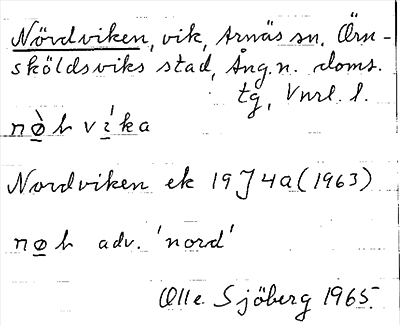 Nördviken, vik, Arnäs sn, Örn-
sköldsviks stad, Ång. n. doms.
tg, Vnrl. l.
nø̀ḷ víka
Nordviken ek 19J4a (1963)
nøḷ adv. 'nord'
Olle Sjöberg 1965.